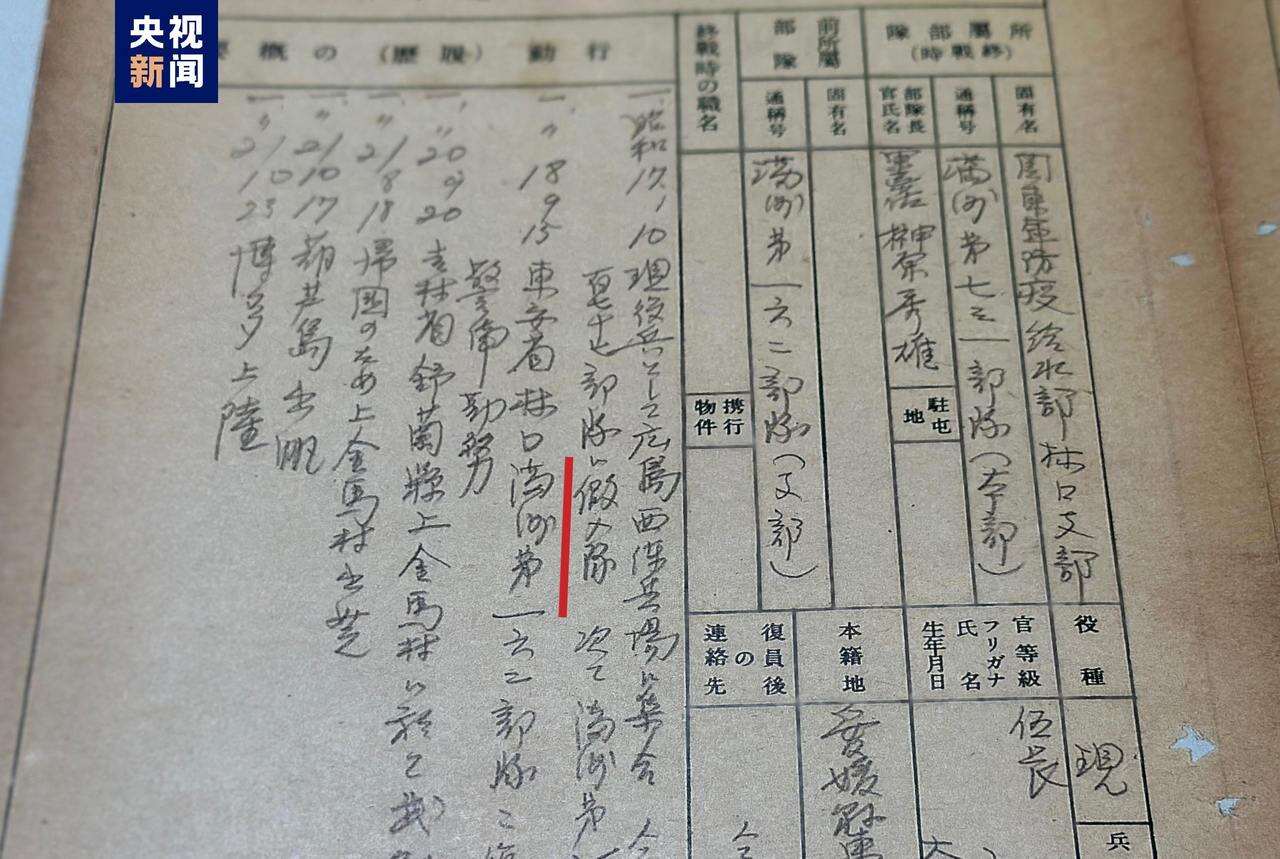 央视
新闻
所屬部隊
(終戰時)
固有名
關東軍防疫給水部林口支部
通稱号
満洲第七三一部隊(本部)
部隊長
官氏名
軍医 榊原秀雄
駐屯
地
前所屬
部隊
固有名
通稱号
満洲第一六二部隊(支部)
終戰時の職名
携行
物件
役種
現
兵
官等級
フリガナ
氏名
生年月日
伍長
本籍地
愛媛縣
復員後
の
連絡先
行動(履歴)の概要
一、昭和17、10 現役兵として広島西練兵場に集合
部隊に假入隊 次で満洲第
一、〃 18 9 15 東安省林口満洲第一六二部隊ニ
警備勤務
一、〃 20 9 20 吉林省舒蘭縣上金馬村に於て武
一、〃 21 8 18 帰國のため上金馬村出発
一、〃 21 10 17 葫芦島出帆
一、〃 21 10 23 博多上陸